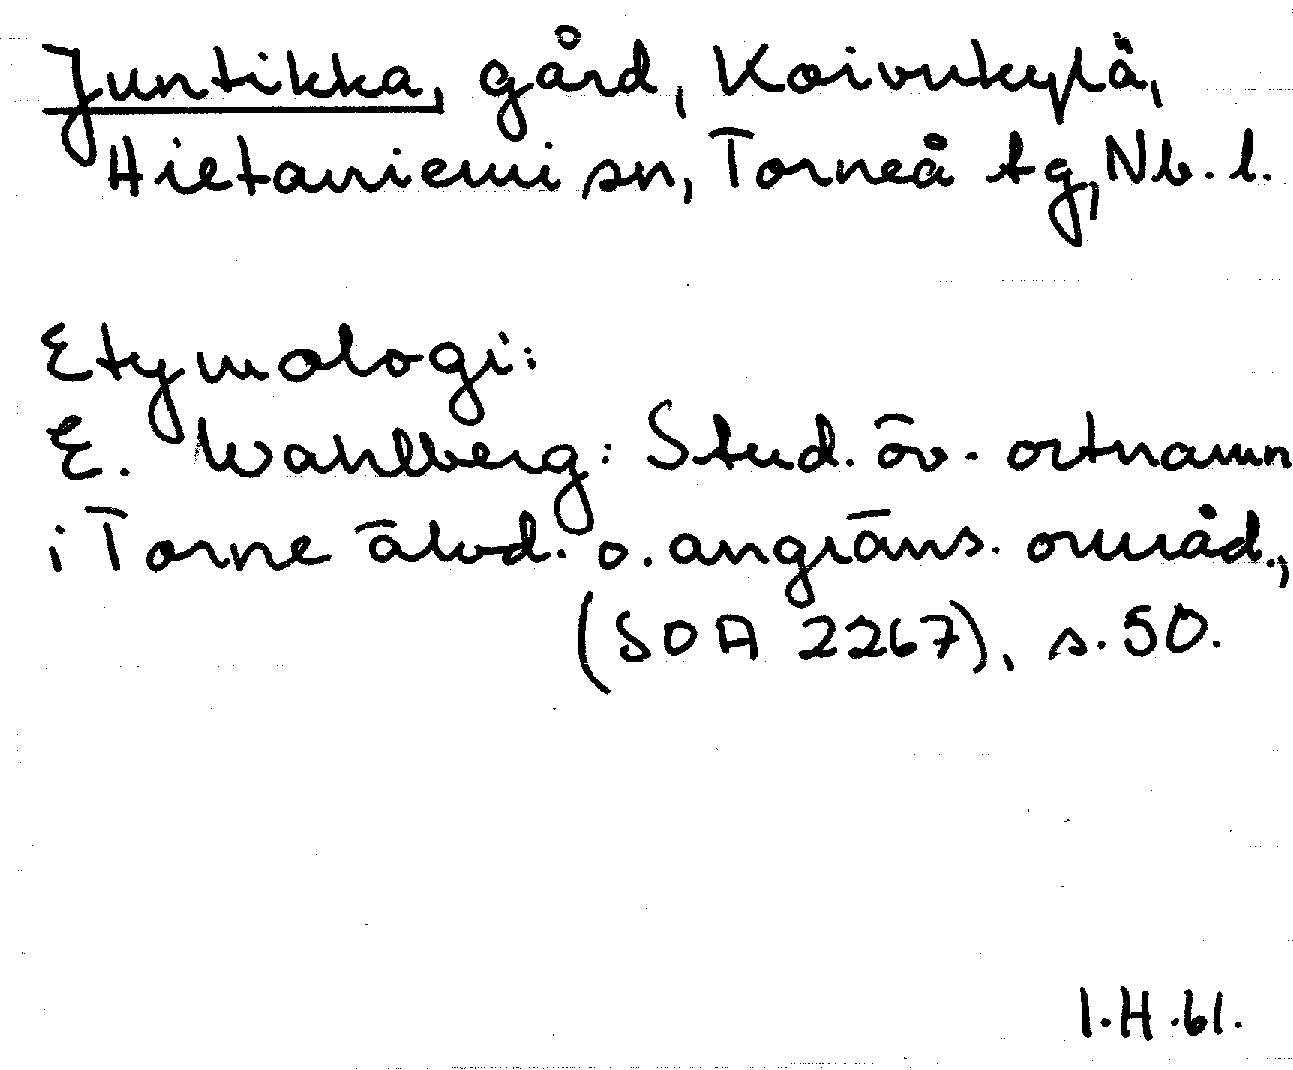 Juntikka, gård, Koivukylä,
Hietaniemi sn, Torneå tg, Nb. l.
Etymologi:
E. Wahlberg: Stud. öv. ortnamn
i Torne älvd. o. angräns. områd.,
(SOA 2267), s. 50.
I.H.61.